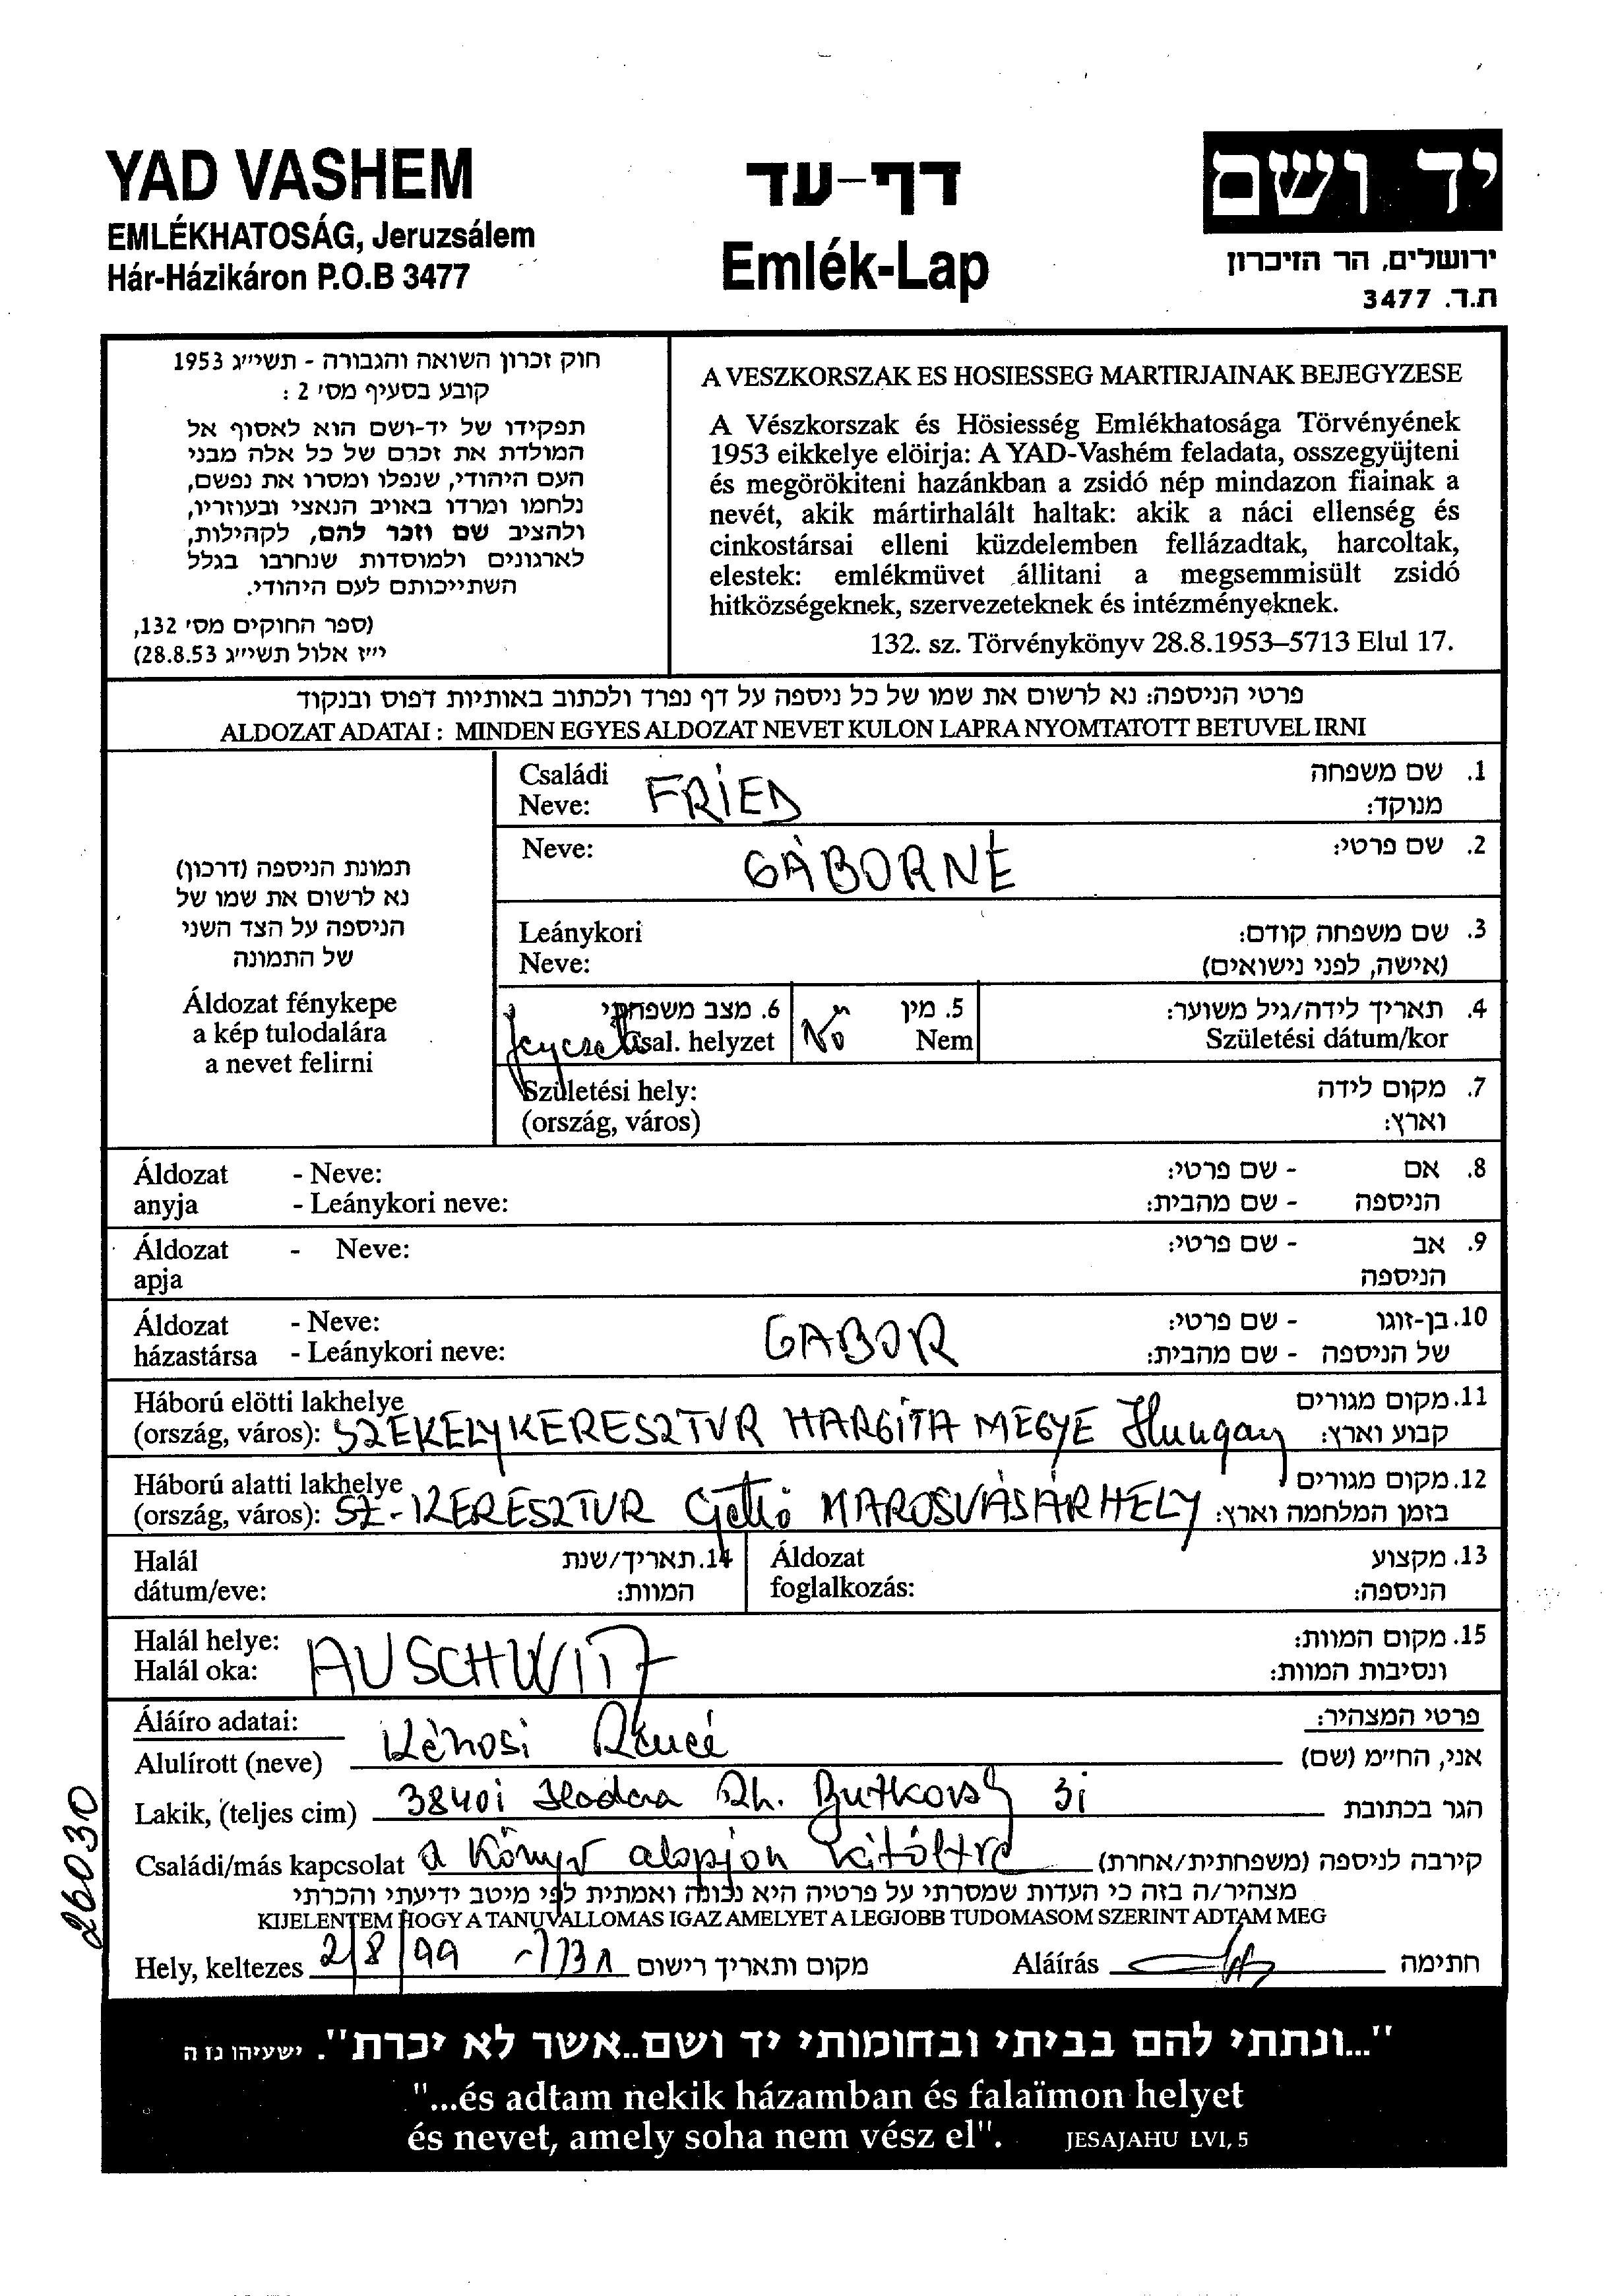 YAD VASHEM
EMLÉKHATOSÁG, Jeruzsálem
Hár-Házikáron P.O.B 3477
דף-עד
Emlék-Lap
יד ושם
ירושלים, הר הזיכרון
ת.ד. 3477
חוק זכרון השואה והגבורה - תשי״ג 1953
קובע בסעיף מס׳ 2 :
תפקידו של יד-ושם הוא לאסוף אל
המולדת את זכרם של כל אלה מבני
העם היהודי, שנפלו ומסרו את נפשם,
נלחמו ומרדו באויב הנאצי ובעוזריו,
ולהציב שם וזכר להם, לקהילות,
לארגונים ולמוסדות שנחרבו בגלל
השתייכותם לעם היהודי.
(ספר החוקים מס׳ 132,
י״ז אלול תשי״ג 28.8.53)
A VESZKORSZAK ES HOSIESSEG MARTIRJAINAK BEJEGYZESE
A Vészkorszak és Hösiesség Emlékhatosága Törvényének
1953 eikkelye elöirja: A YAD-Vashém feladata, osszegyüjteni
és megörökiteni hazánkban a zsidó nép mindazon fiainak a
nevét, akik mártirhalált haltak: akik a náci ellenség és
cinkostársai elleni küzdelemben fellázadtak, harcoltak,
elestek: emlékmüvet állitani a megsemmisült zsidó
hitközségeknek, szervezeteknek és intézményeknek.
132. sz. Törvénykönyv 28.8.1953–5713 Elul 17.
פרטי הניספה: נא לרשום את שמו של כל ניספה על דף נפרד ולכתוב באותיות דפוס ובנקוד
ALDOZAT ADATAI : MINDEN EGYES ALDOZAT NEVET KULON LAPRA NYOMTATOTT BETUVEL IRNI
תמונת הניספה (דרכון)
נא לרשום את שמו של
הניספה על הצד השני
של התמונה
Áldozat fénykepe
a kép tulodalára
a nevet felirni
Családi 1. שם משפחה
Neve: FRIED מנוקד:
Neve: GÁBORNÉ 2. שם פרטי:
Leánykori 3. שם משפחה קודם:
Neve: (אישה, לפני נישואים)
6. מצב משפחתי 5. מין 4. תאריך לידה/גיל משוער:
Csal. helyzet Nő Nem Születési dátum/kor
Születési hely: 7. מקום לידה
(ország, város) וארץ:
Áldozat - Neve: - שם פרטי: 8. אם
anyja - Leánykori neve: - שם מהבית: הניספה
Áldozat - Neve: - שם פרטי: 9. אב
apja הניספה
Áldozat - Neve: - שם פרטי: 10. בן-זוגו
házastársa - Leánykori neve: GABOR - שם מהבית: של הניספה
Háború elötti lakhelye 11. מקום מגורים
(ország, város): SZEKELYKERESZTUR HARGITA MEGYE Hungary קבוע וארץ:
Háború alatti lakhelye 12. מקום מגורים
(ország, város): SZ-KERESZTUR Gettó MAROSVÁSÁRHELY בזמן המלחמה וארץ:
Halál 14. תאריך/שנת Áldozat 13. מקצוע
dátum/eve: המוות: foglalkozás: הניספה:
Halál helye: 15. מקום המוות:
Halál oka: AUSCHWITZ ונסיבות המוות:
Áláíro adatai: פרטי המצהיר:
Alulírott (neve) Kénosi אני, החי״מ (שם)
Lakik, (teljes cim) Hadera 31 הגר בכתובת
Családi/más kapcsolat a Könyv alapján kitöltve קירבה לניספה (משפחתית/אחרת)
מצהיר/ה בזה כי העדות שמסרתי על פרטיה היא נכונה ואמתית לפי מיטב ידיעתי והכרתי
KIJELENTEM HOGY A TANUVALLOMAS IGAZ AMELYET A LEGJOBB TUDOMASOM SZERINT ADTAM MEG
Hely, keltezes 2/8/99 מקום ותאריך רישום Aláírás חתימה
26030
"...ונתתי להם בביתי ובחומותי יד ושם..אשר לא יכרת". ישעיהו נז ה
"...és adtam nekik házamban és falaïmon helyet
és nevet, amely soha nem vész el". JESAJAHU LVI, 5